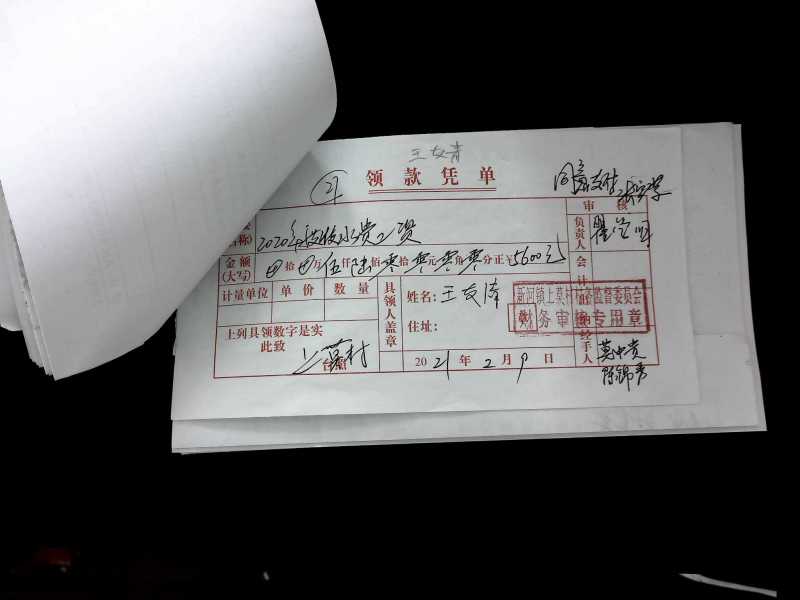 王友青
领款凭单
同意支付
审核
名称)
2020年技收水费工资
负责人
金额
(大写)
拾 万伍仟陆佰零拾零元零角零分正¥5600元
会计
计量单位 单价 数量
具领人盖章
姓名: 王友涛
新河镇上莫村村务监督委员会
财务审核专用章
住址:
上列具领数字是实
此致
上莫村
台照
2021年2月9日
经手人
莫中贵
陈锦青